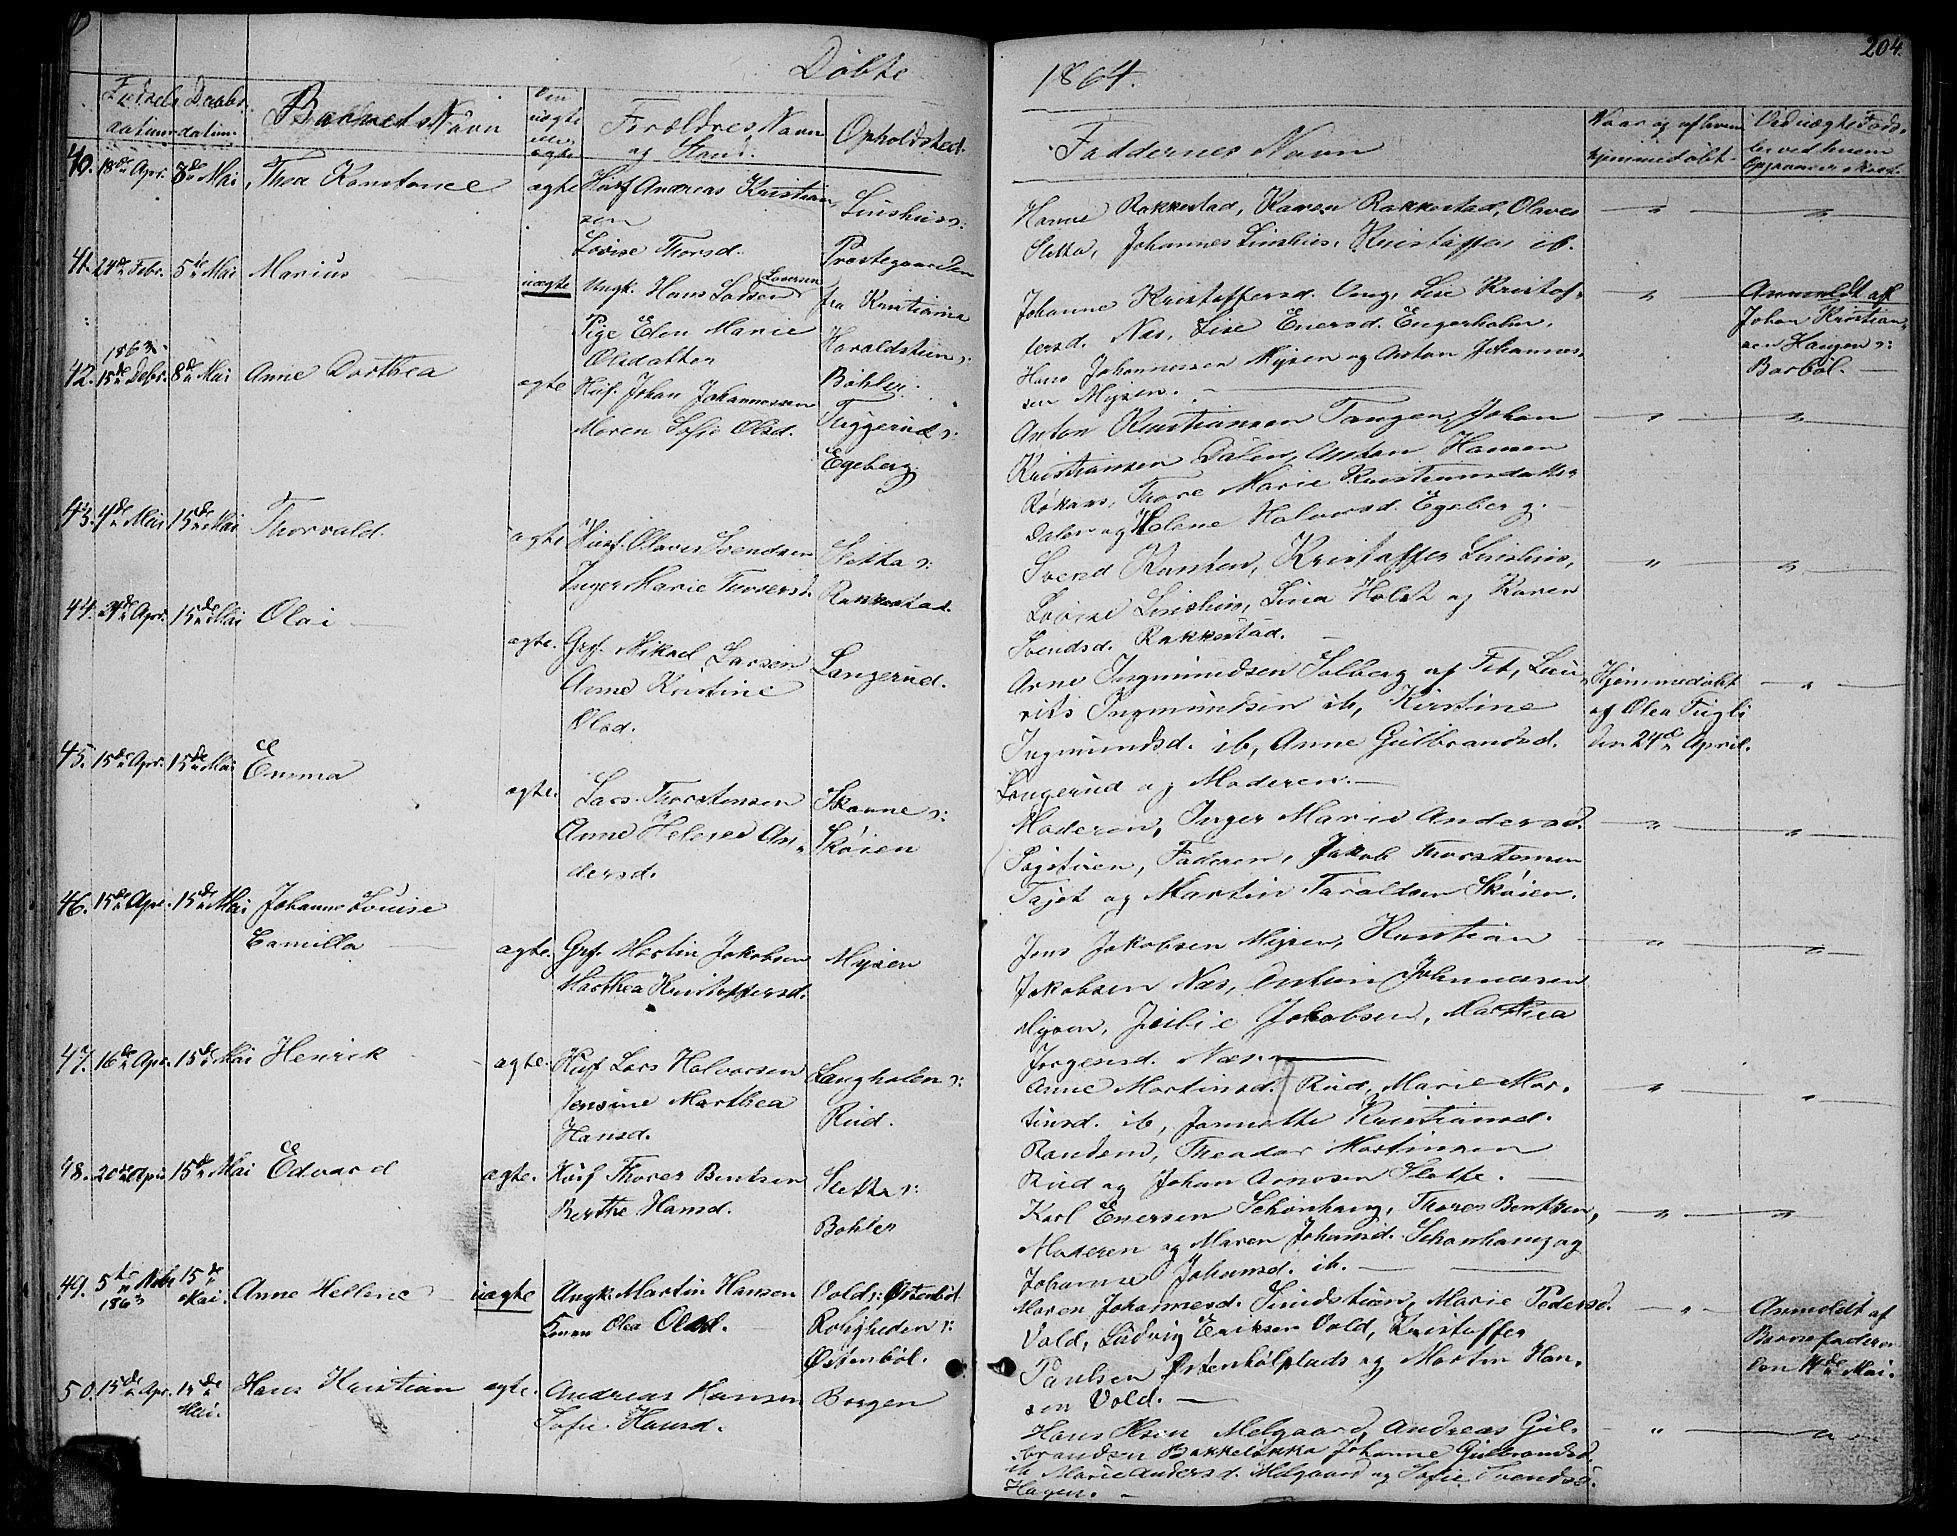 Døbte
1864.
204.
Fødsels datum.
Daabs datum.
Barnets Navn
Om uægte eller ægte
Forældres Navn og Stand.
Opholdsted.
Faddernes Navn
Naar og af hvem hjemmedøbt.
40. 18de Apr. 8de Mai Thea Konstance ægte Husf. Andreas Kristian
sen
Lovise Thorsd.
Linshus
Hanne Rakkestad, Karen Rakkestad, Olaves
Sletta, Johannes Linshus, Kristoffer ib.
41. 24de Febr. 5te Mai Marius uægte Ungk. Hans Larsen
Pige Elen Marie
Olsdatter
Præstegaarden
fra Kristiania
Haraldstuen
Bøhler.
Johanne Kristoffersd. Lise Kristof-
fersd. Næs, Lise Enersd. Engerholm,
Hans Johannessen Mysen og Anton Johannes-
sen Mysen.
Anmeldt af
Johan Kristian-
sen Haugen
Barbøl.
42. 1863. 15de Debr. 8de Mai Anne Dorthea ægte Husf. Johan Johannessen
Maren Sofie Olsd.
Tuggerud
Egeberg.
Anton Kristiansen Tangen, Johan
Kristiansen Dalen, Anton Hansen
Thore Marie Kristiansdatter
Dalen og Helene Halvorsd. Egeberg.
43. 4de Mai 15de Mai Thorvald. ægte Husf. Olaves Svendsen
Inger Marie Thorersd.
Sletta
Rakkestad.
Svend Kristoffer Linshus,
Lovise Linshus, Lina Holst og Karen
Svendsd. Rakkestad.
44. 24de Apr. 15de Mai Olai ægte. Grf. Mikael Larsen
Anne Kristine
Olsd.
Langerud.
Arne Ingmundsen Solberg af Fet, Lau-
rits Ingmundsen ib, Kirstine
Ingmundsd. ib, Anne Gulbrandsd.
Langerud og Moderen.
Hjemmedøbt
af Olea Fugli
den 24de April.
45. 15de Apr. 15de Mai Emma ægte. Lars Thorstensen
Anne Helene An-
dersd.
Skanne
Skøien
Moderen, Inger Marie Andersd.
Faderen, Jakob Thorstensen
Tajet og Martin Taraldsen Skøien.
46. 15de Apr. 15de Mai Johanne Louise
Camilla
ægte. Grf. Martin Jakobsen
Marthea Kristoffersd.
Mysen
Jens Jakobsen Mysen, Kristian
Jakobsen Næs, Anton Johannessen
Mysen, Julie Jakobsen, Marthea
Jørgensd. Næs.
47. 16de Apr. 15de Mai Henrik ægte. Husf Lars Halvorsen
Jensine Marthea
Hansd.
Langholen
Rud.
Anne Martinsd. Rud, Marie Mar-
tinsd. ib, Jannette Kristiansd.
Randem, Theodor Martinsen
Rud og Johan Arnesen Slotte.
48. 20de Apr. 15de Mai Edvard ægte. Husf Thorer Bentsen
Berthe Hansd.
Sletta
Bøhler
Karl Enersen Schønhaug, Thorer Bentsen,
Moderen og Maren Johansd. Schønhaug og
Johanne Johansd. ib.
49. 5te Nobr 1863 15de Mai. Anne Hellene uægte Ungk. Martin Hansen
Olea Olsd.
Vold Østenbøl
Roligheden
Østenbøl.
Maren Johannesd. Sundstuen, Marie Pedersd.
Vold, Ludvig Eriksen Vold, Kristoffer
Paulsen Østenbølplads og Martin Han-
sen Vold.
Anmeldt af
Barnefaderen
den 14de Mai.
50. 15de Apr. 15de Mai. Hans Kristian ægte. Andreas Hansen
Sofie Hansd.
Borgen
Hans Olsen Melgaard, Andreas Gul-
brandsen Bakkeløkka Johanne Gulbrandsd.
ib Marie Andersd. Melgaard og Sofie Svendsd.
Hagen.